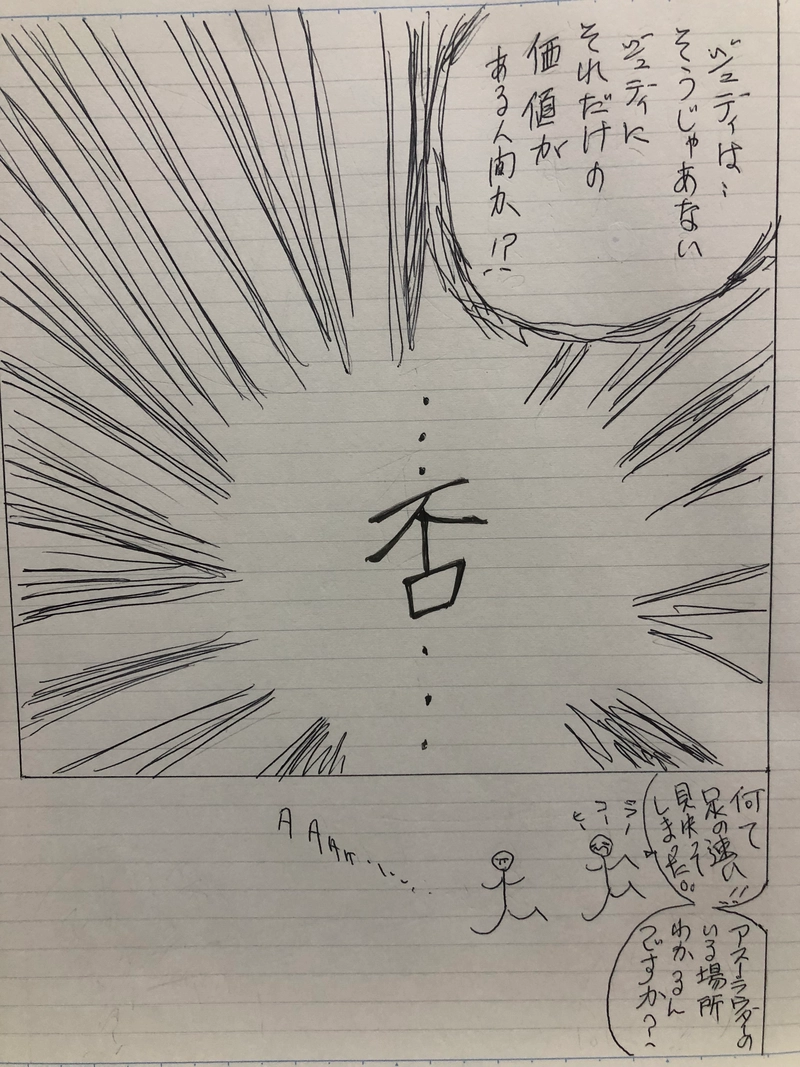 ジュディは…
そうじゃあない
ジュディに
それだけの
価値が
ある人間か!?
・・・否・・・
何て
足の速い!!
見失って
しまった。
ヒーコーラー
A A A A
いる場所
わかるん
ですか?